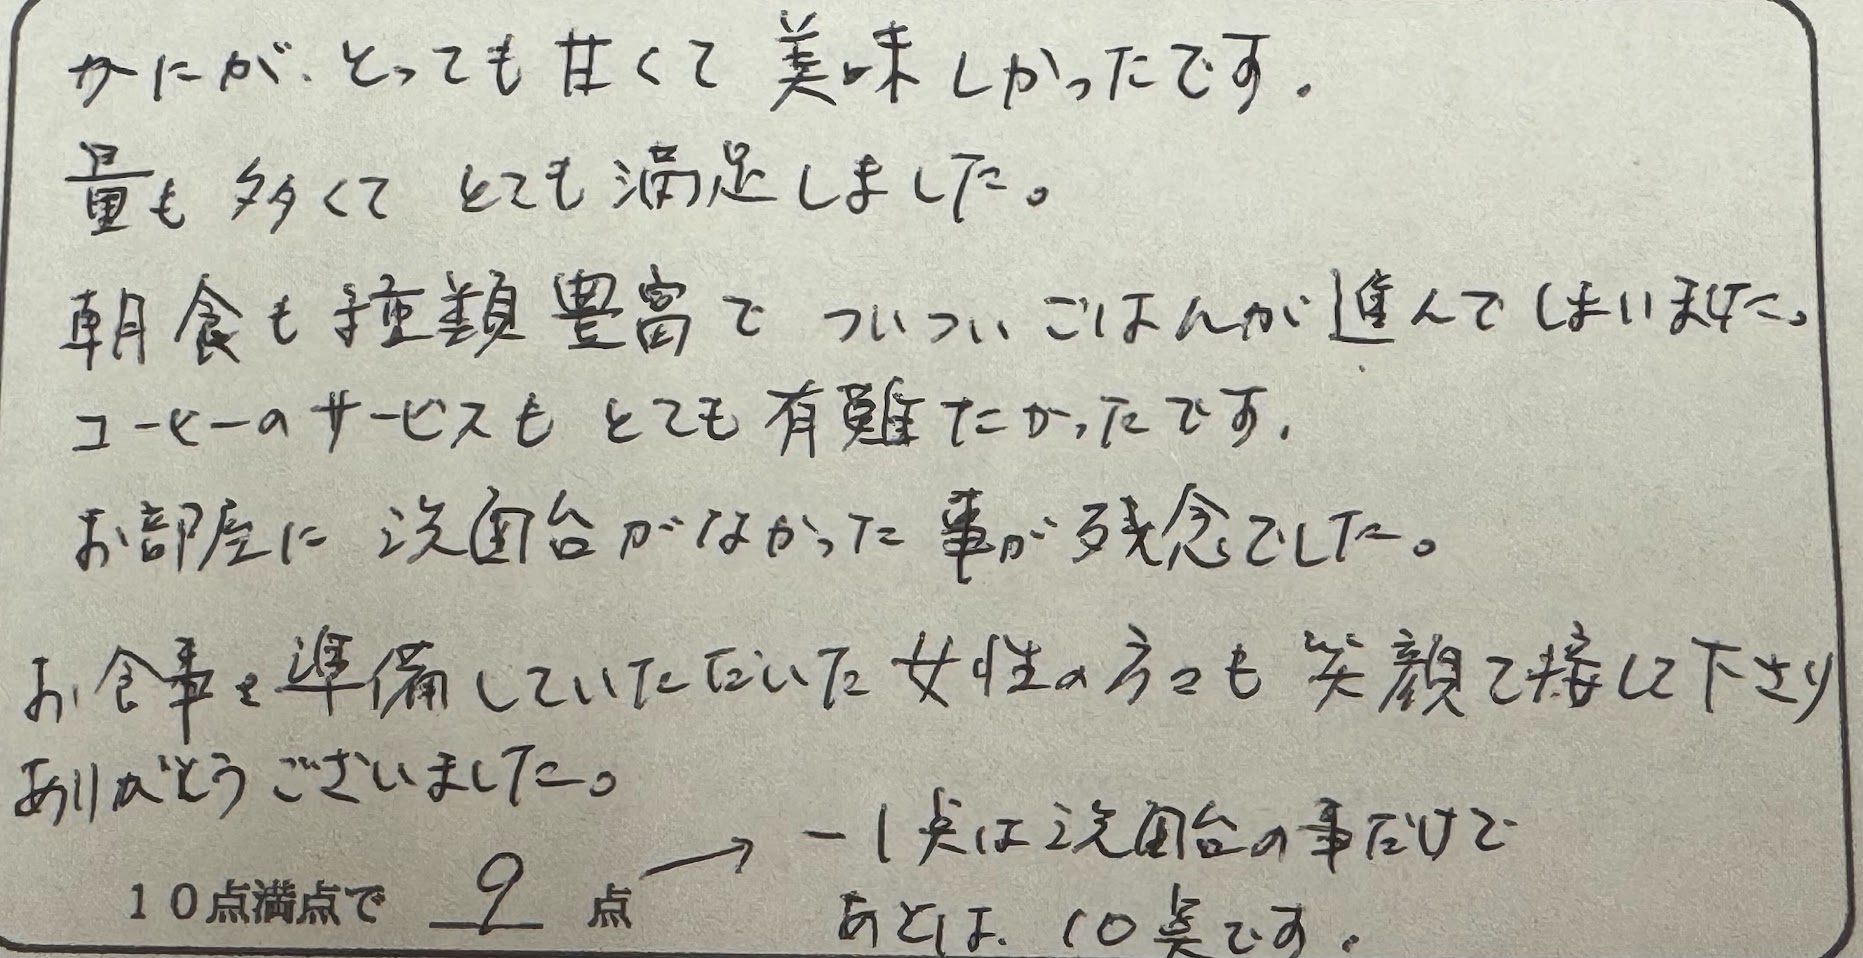 かにが、とっても甘くて美味しかったです。
量も多くてとても満足しました。
朝食も種類豊富でついついごはんが進んでしまいました。
コーヒーのサービスもとても有難たかったです。
お部屋に洗面台がなかった事が残念でした。
お食事を準備していただいた女性の方々も笑顔で接して下さり
ありがとうございました。
10点満点で 9 点 → -1点は洗面台の事だけで
あとは、10点です。